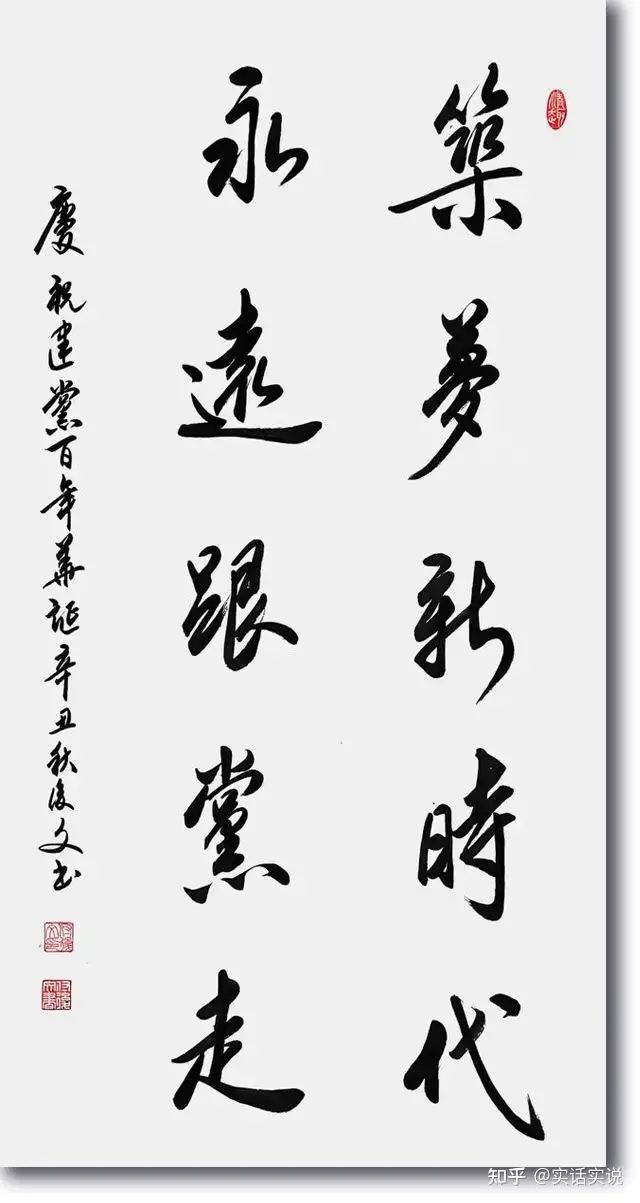 築夢新時代
永遠跟黨走
慶祝建黨百年華誕辛丑秋俊文書
知乎 @实话实说